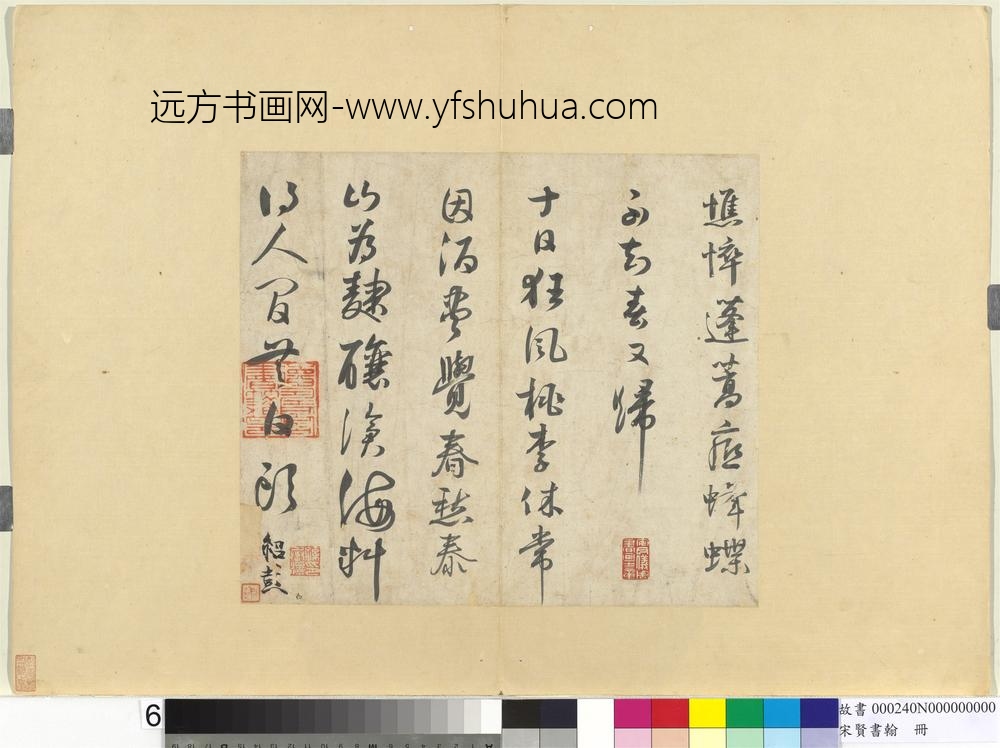 远方书画网-www.yfshuhua.com
憔悴蓬蒿蜂蝶
不知春又歸
十日狂風桃李休常
因酒盡覺春愁泰
山為麴釀滄海料
得人間無白頭
紹彭
6
故書 000240N000000000
宋賢書翰 冊